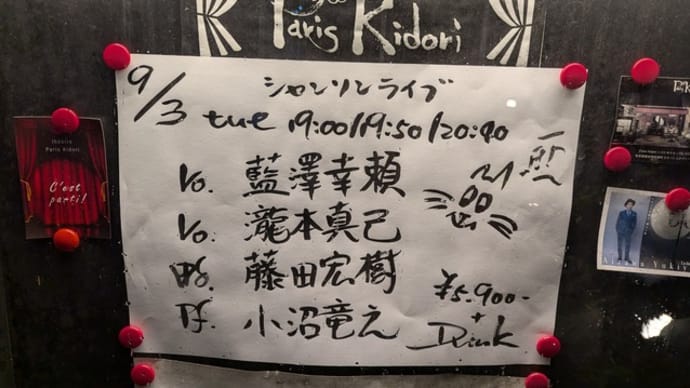 Paris Kidori
9/3
シャンソンライブ
tue 19:00/19:50/20:40
Vo. 藍澤幸頼
Vo. 瀧本真己
藤田宏樹
Pf. 小沼竜之
¥5.900-
+
Drink
théâtre
Paris Kidori
C'est
parti!